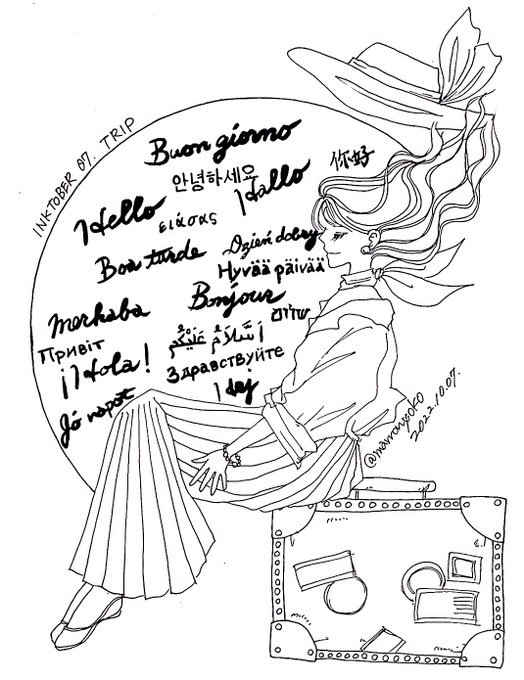 INKTOBER 07. TRIP
Buon giorno
안녕하세요
Hallo
你好
Hello
εiάσας
Boa tarde
Dzień dobry
Hyvää päivää
Merhaba
Bonjour
שלום
Привіт
اَسَّلَامُ عَلَيْكُم
¡Hola!
Здравствуйте
Hej
Jó napot
2022.10.07.